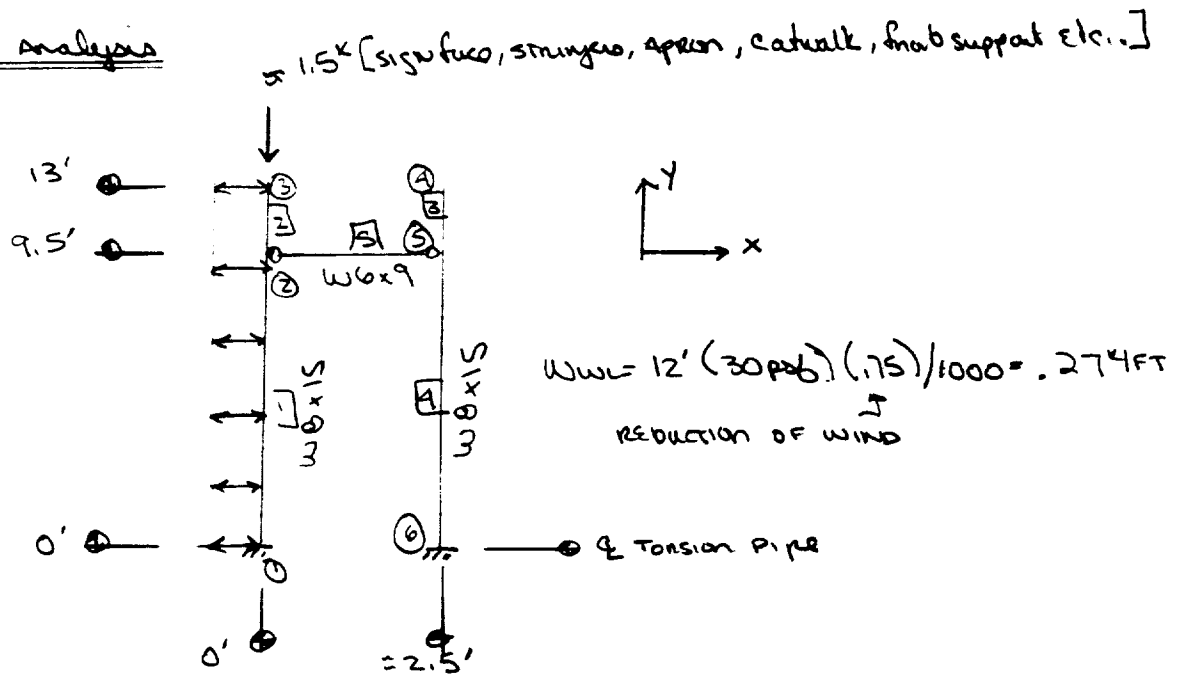 Analysis
≈ 1.5ᴷ [sign face, stringers, Apron, catwalk, support etc..]
13'
③
④
2
3
9.5'
5
⑤
W6x9
②
Y
X
1
W8x15
4
W8x15
WWL= 12' (30psf) (.75)/1000 = .27ᴷ/FT
REDUCTION OF WIND
0'
①
⑥
℄ Torsion Pipe
0'
≈2.5'